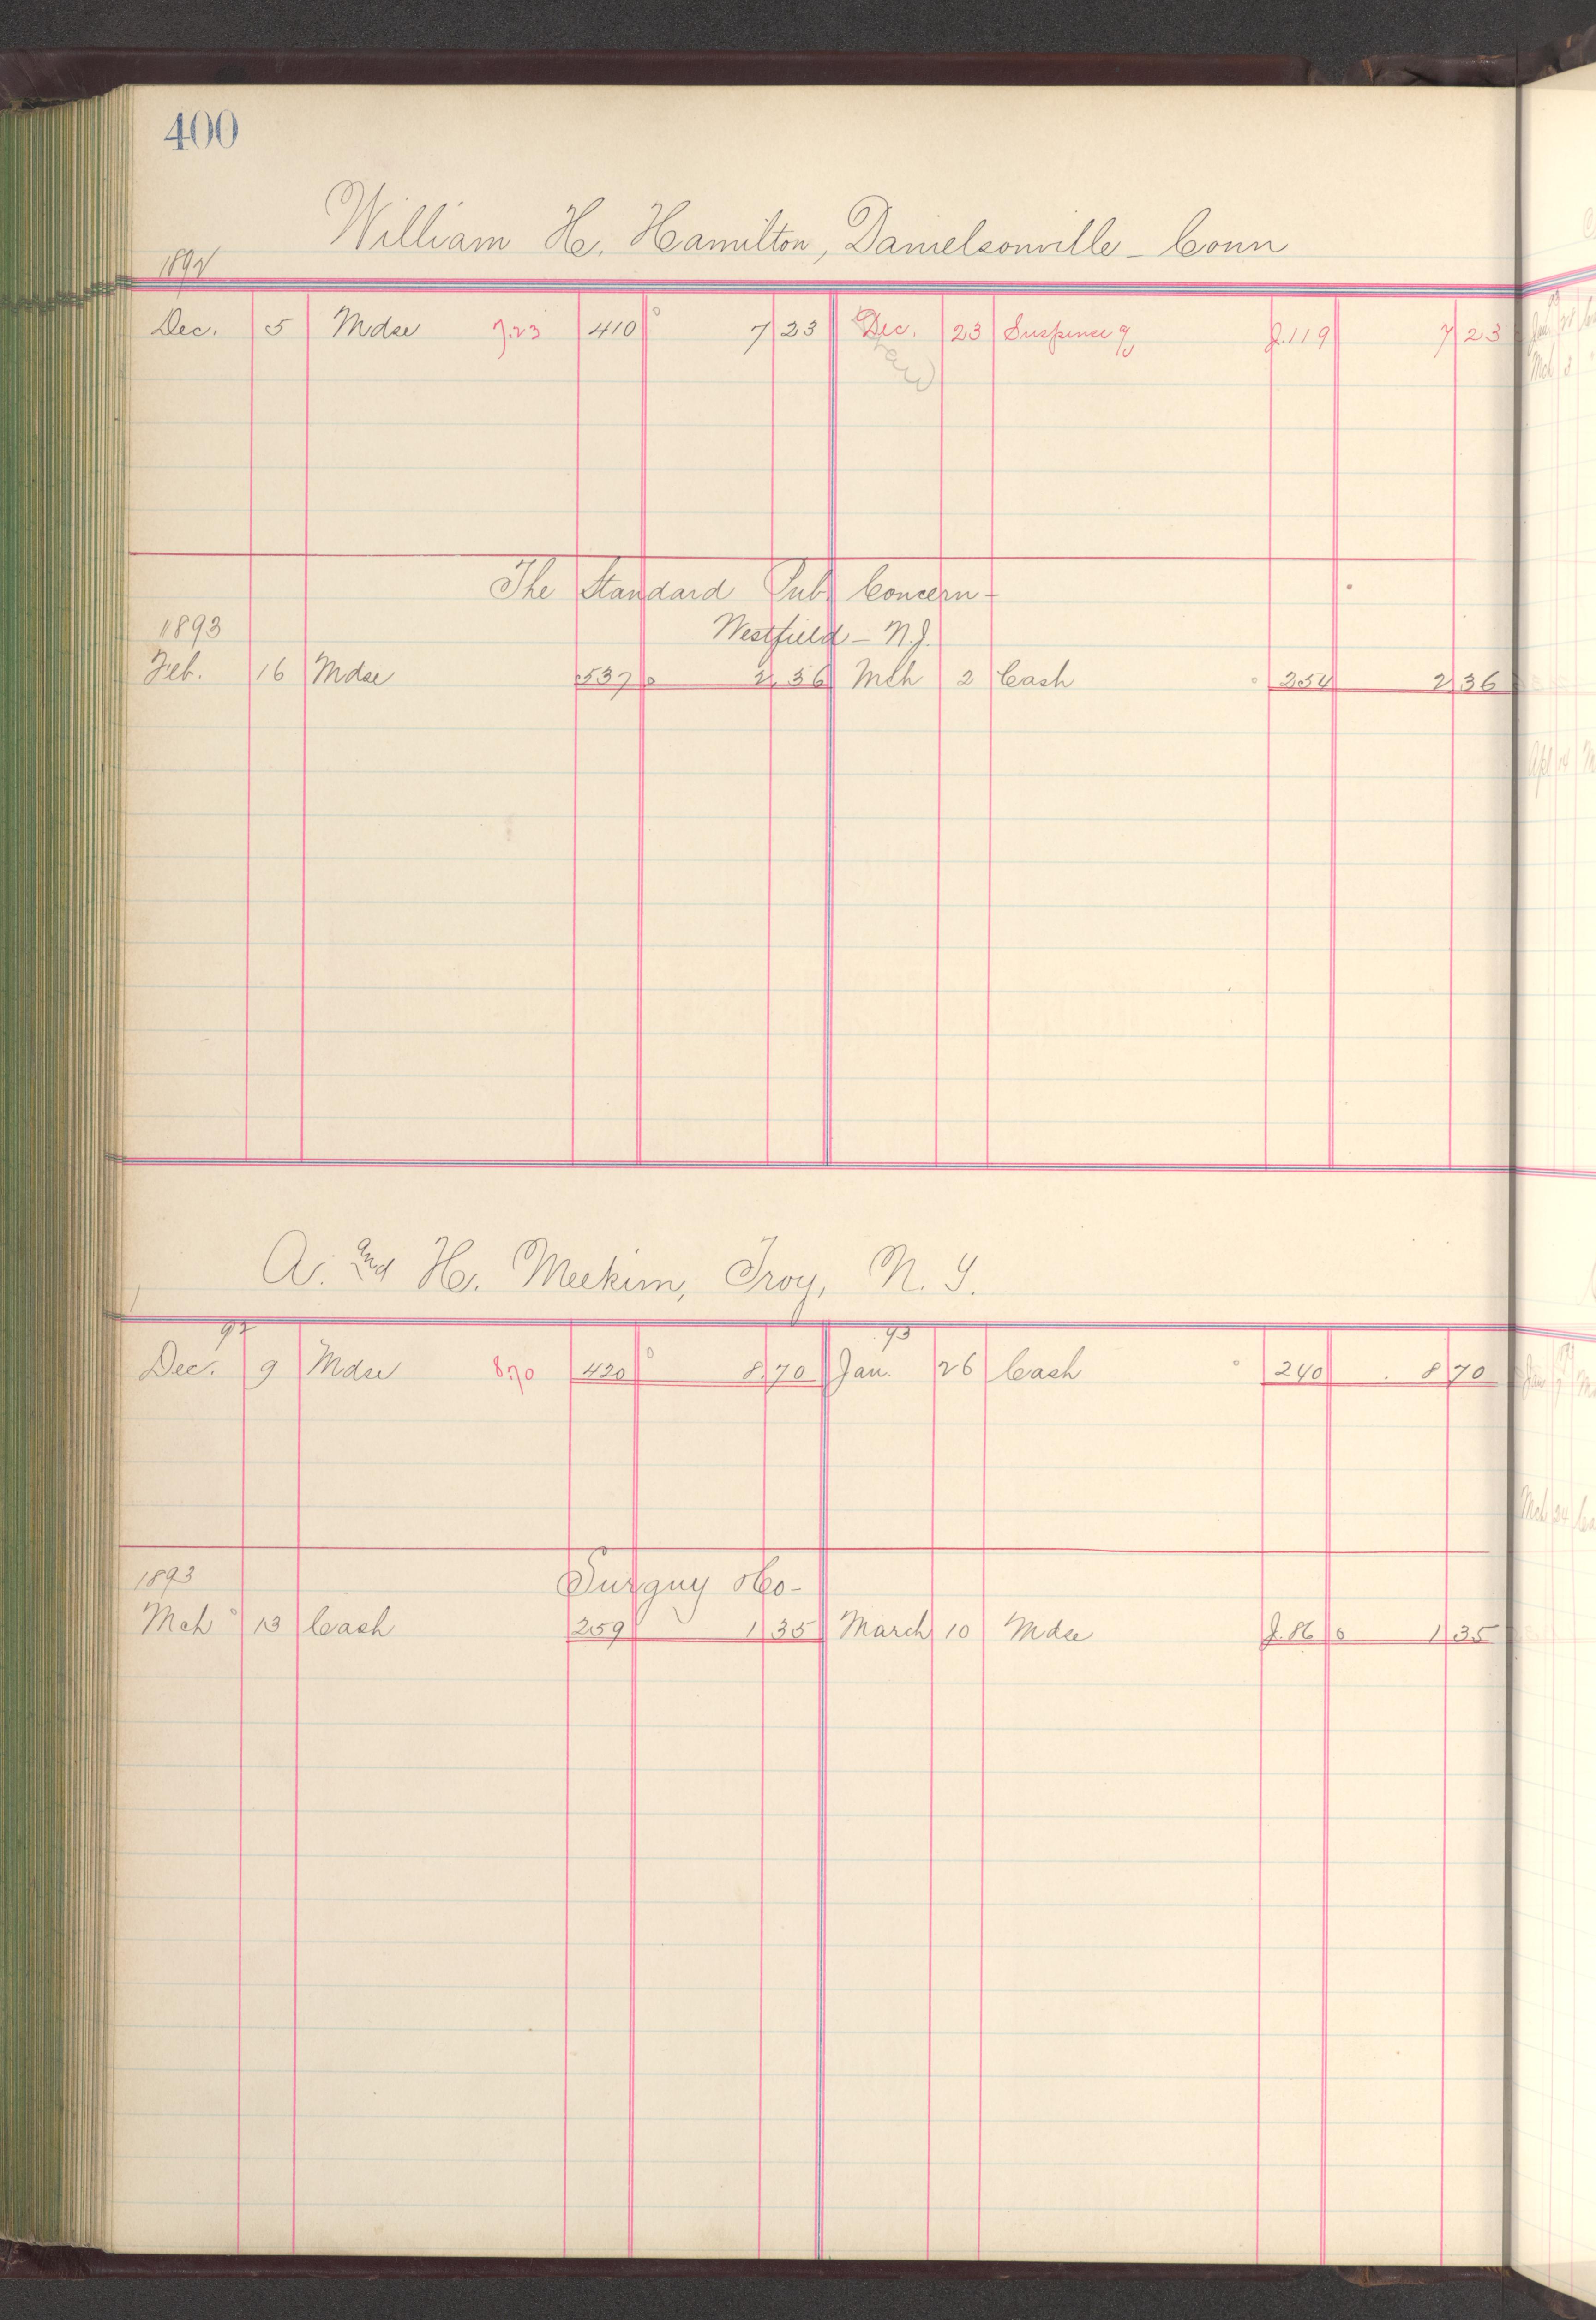 400
William H. Hamilton, Danielsonville - Conn
1892
Dec. 5 Mdse 7.23 410 7 23 Dec. 23 Suspense J.119 7 23
The Standard Pub. Concern -
1893 Westfield - N.J.
Feb. 16 Mdse 537 2.36 Mch 2 Cash 254 2 36
A. and H. Meekim, Troy, N. Y.
92 93
Dec. 9 Mdse 8.70 420 8.70 Jan. 26 Cash 240 8 70
1893 Surguy & Co -
Mch 13 Cash 259 1 35 March 10 Mdse J.86 1 35